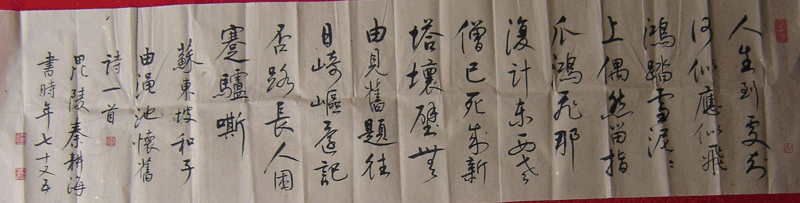 人生到處知
何似應似飛
鴻踏雪泥〻
上偶然留指
爪鴻飛那
復計東西老
僧已死成新
塔壞壁無
由見舊題往
日崎嶇還記
否路長人困
蹇驢嘶
蘇東坡和子
由澠池懷舊
詩一首
毘陵秦耕海
書時年七十又五